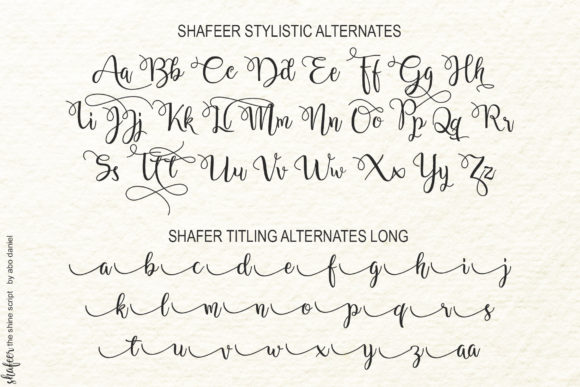 SHAFEER STYLISTIC ALTERNATES
Aa Bb Cc Dd Ee Ff Gg Hh
Ii Jj Kk Ll Mm Nn Oo Pp Qq Rr
Ss Tt Uu Vv Ww Xx Yy Zz
SHAFER TITLING ALTERNATES LONG
a b c d e f g h i j
k l m n o p q r s
t u v w x y z aa
shafeer the shine script by abo daniel